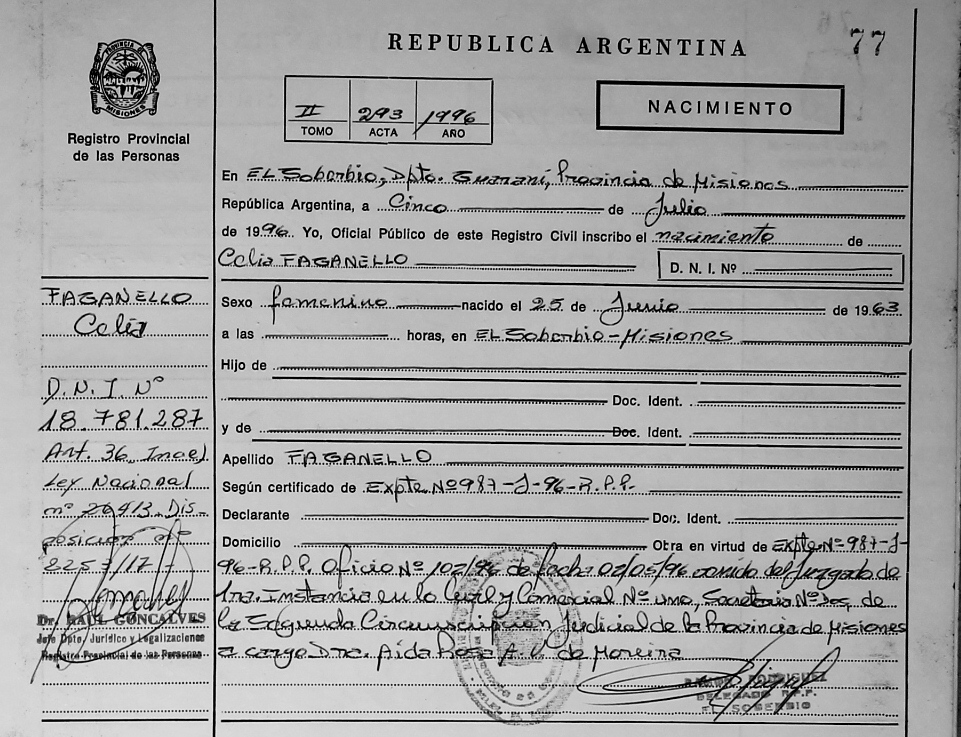 77
REPUBLICA ARGENTINA
PROVINCIA DE MISIONES
Registro Provincial
de las Personas
II 293 1996
TOMO ACTA AÑO
NACIMIENTO
En EL Soberbio, Dpto. Guaraní, Provincia de Misiones
República Argentina, a Cinco de Julio
de 1996. Yo, Oficial Público de este Registro Civil inscribo el nacimiento de
Celia FAGANELLO D. N. I. Nº
Sexo femenino nacido el 25 de Junio de 1963
a las horas, en EL Soberbio - Misiones
Hijo de
Doc. Ident.
y de Doc. Ident.
Apellido FAGANELLO
Según certificado de Expte Nº 987-J-96-R.P.P.
Declarante Doc. Ident.
Domicilio Obra en virtud de Expte Nº 987-J-
96-R.P.P. Oficio Nº 102/96 de fecha 02/05/96 venido del Juzgado de
1ra. Instancia en lo Civil y Comercial Nº uno, Secretaria Nº Dos, de
la Segunda Circunscripcion Judicial de la Provincia de Misiones
a cargo Dra. Aida Rosa A. V. de Moreira
FAGANELLO
Celia
D. N. I. Nº
18.781.287
Art. 36 Inc e)
Ley Nacional
nº 26413 Dis-
posición nº
2257/17
Dr. RAUL GONCALVES
Jefe Dpto. Jurídico y Legalizaciones
Registro Provincial de las Personas
RODRIGUEZ
DELEGADO R.P.P.
EL SOBERBIO